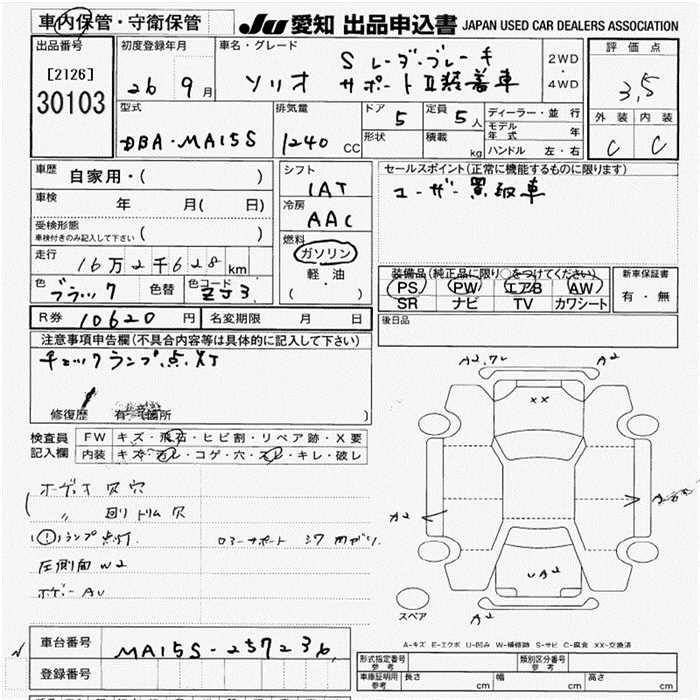 車内保管・守衛保管
JU 愛知 出品申込書 JAPAN USED CAR DEALERS ASSOCIATION
出品番号
[2126]
30103
初度登録年月
26 9月
車名・グレード
S レーダーブレーキ
ソリオ サポートⅡ装着車
2WD
・
4WD
評価点
3,5
外装 内装
C C
型式
DBA・MA15S
排気量
1240 CC
ドア 5
形状
定員 5人
積載 kg
ディーラー・並行
モデル年式 年
ハンドル 左・右
車歴 自家用・( )
車検 年 月( 日)
受検形態
車検付きのみ記入して下さい ( )
走行 16万2千628km
色 ブラック 色替 色コード ZJ3
シフト
1AT
冷房
AAC
燃料
ガソリン
軽油
( ・ )
セールスポイント(正常に機能するものに限ります)
ユーザー買取車
装備品(純正品に限り○をつけてください)
PS PW エアB AW
SR ナビ TV カワシート
新車保証書
有・無
後日品
R券 10620円 名変期限 月 日
注意事項申告欄(不具合内容等は具体的に記入して下さい)
チェックランプ点灯
修復歴 有 箇所 )
検査員記入欄
FW キズ・飛石・ヒビ割・リペア跡・X要
内装 キズ・汚レ・コゲ・穴・スレ・キレ・破レ
〃 回りトリム穴
(!)ランプ点灯
圧側面W2
ボデーAU
A2
A2
XX
A2
UA2
A2
スペア
A-キズ E-エクボ U-凹み W-補修跡 S-サビ C-腐食 XX-交換済
車台番号 MA15S-257236
登録番号
型式指定番号 参考
類別区分番号 参考
車庫証明用 参考 長さ cm 幅 cm 高さ cm